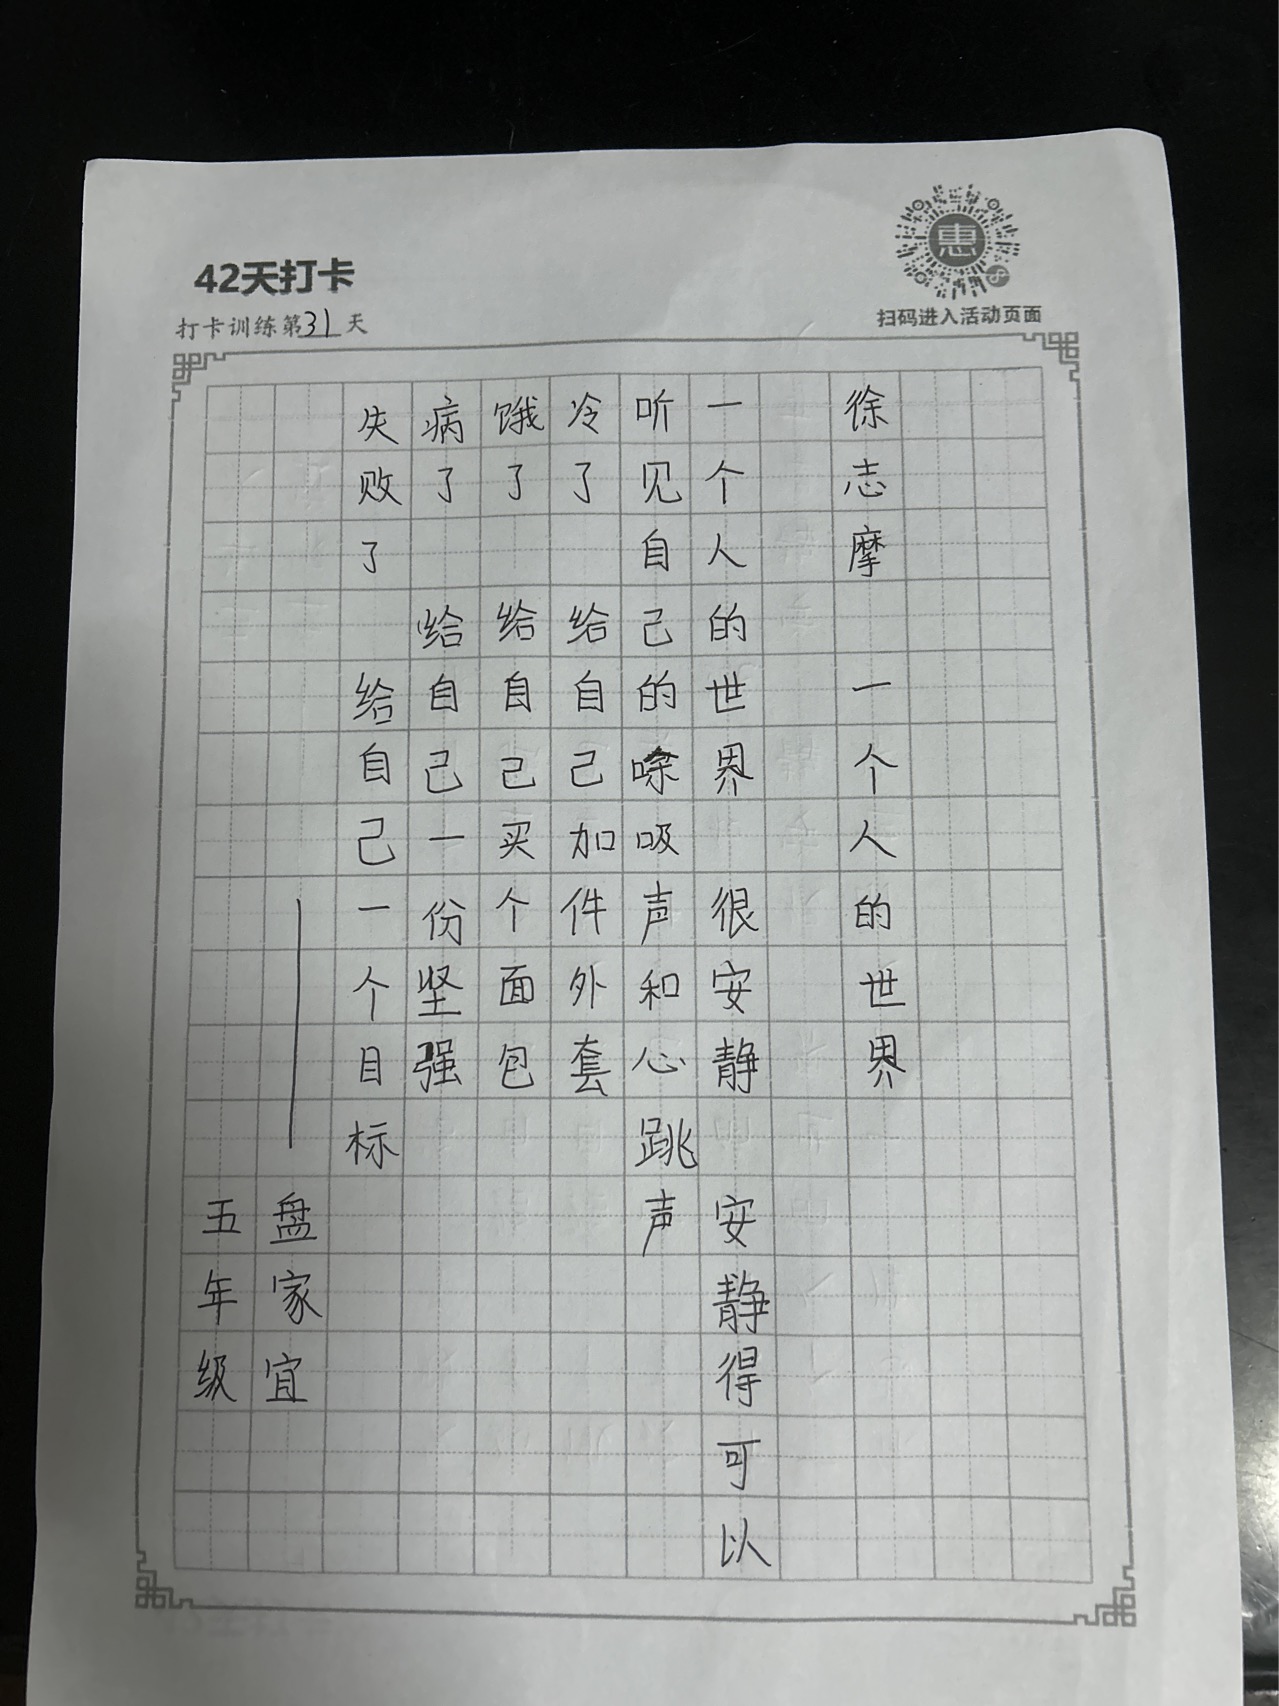 42天打卡
打卡训练第31天
惠
扫码进入活动页面
徐志摩 一个人的世界
一个人的世界 很安静 安静得可以
听见自己的吸声和心跳声
冷了 给自己加件外套
饿了 给自己买个面包
病了 给自己一份坚强
失败了 给自己一个目标
——盘家宜
五年级